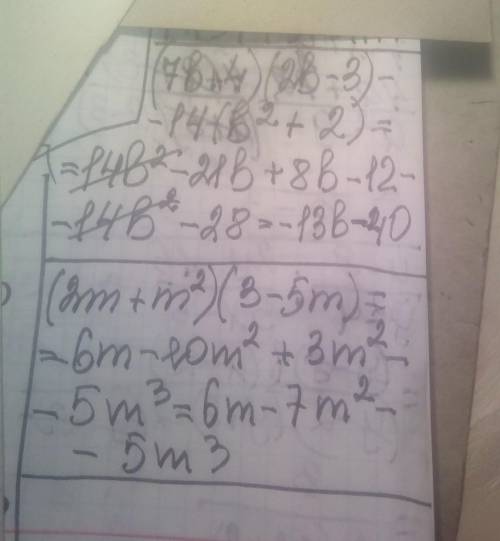 (7b+4)(2b-3)-
-14(b²+2)=
=14b²-21b+8b-12-
-14b²-28=-13b-40
(2m+m²)(3-5m)=
=6m-10m²+3m²-
-5m³=6m-7m²-
-5m3